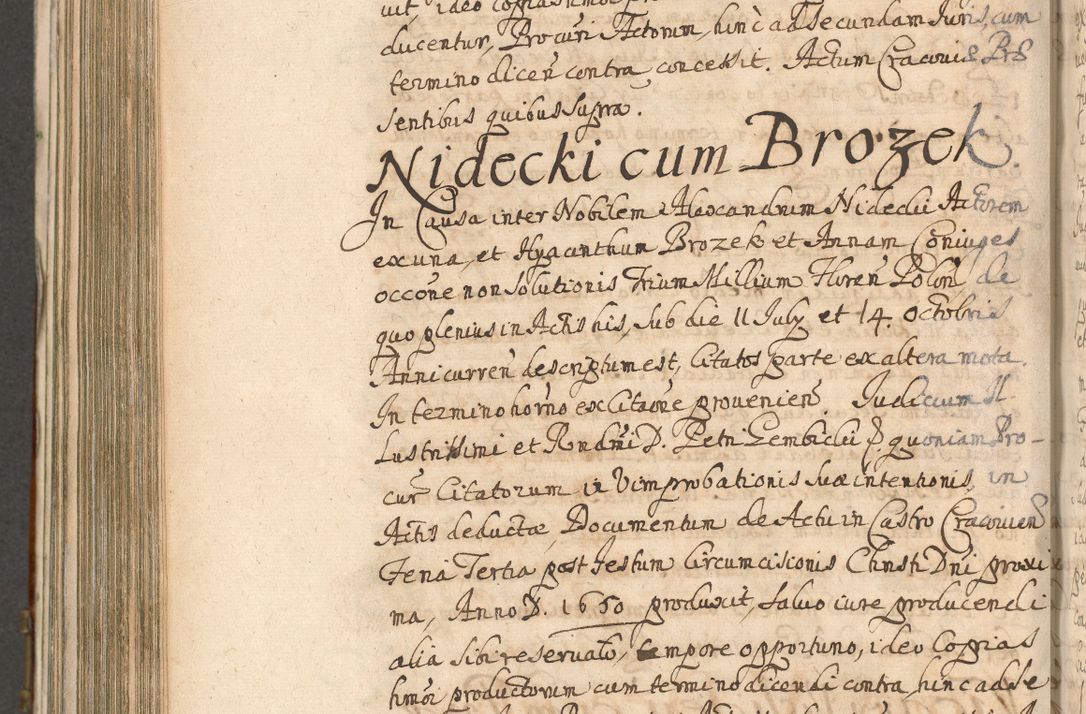 vit, ideo copias
ducentur, Procuri Actorum, hinc ad Secundam Iuris, cum
termino dicen contra concessit. Actum Cracoviæ Præ
sentibus quibus Supra.
Nidecki cum Brozek
In Causa inter Nobilem Alexandrum Nidecki Actorem
ex una, et Hyacinthum Brozek et Annam Coniuges
occone non Solutionis Trium Millium Floren Polon de
quo plenius in Actis his, Sub die 11 July et 14. Octobris
Anni curren descriptum est, Citatos parte ex altera mota.
In termino horno ex Citatone provenien. Judicium Il
Lustrissimi et Rndmi D. Petri Gembicki E. quoniam Pro-
cur Citatorum in Vim probationis Suæ intentionis, in
Actis deductæ, Documentum de Actu in Castro Cracovien
Feria Tertia post Festum Circumcisionis Christi Dni proxi
ma, Anno D. 1650 produxit, Salvo iure producendi
alia Sibi reservato, tempore opportuno, ideo Copias
hmoi productorum cum termino dicendi contra, hinc ad Se